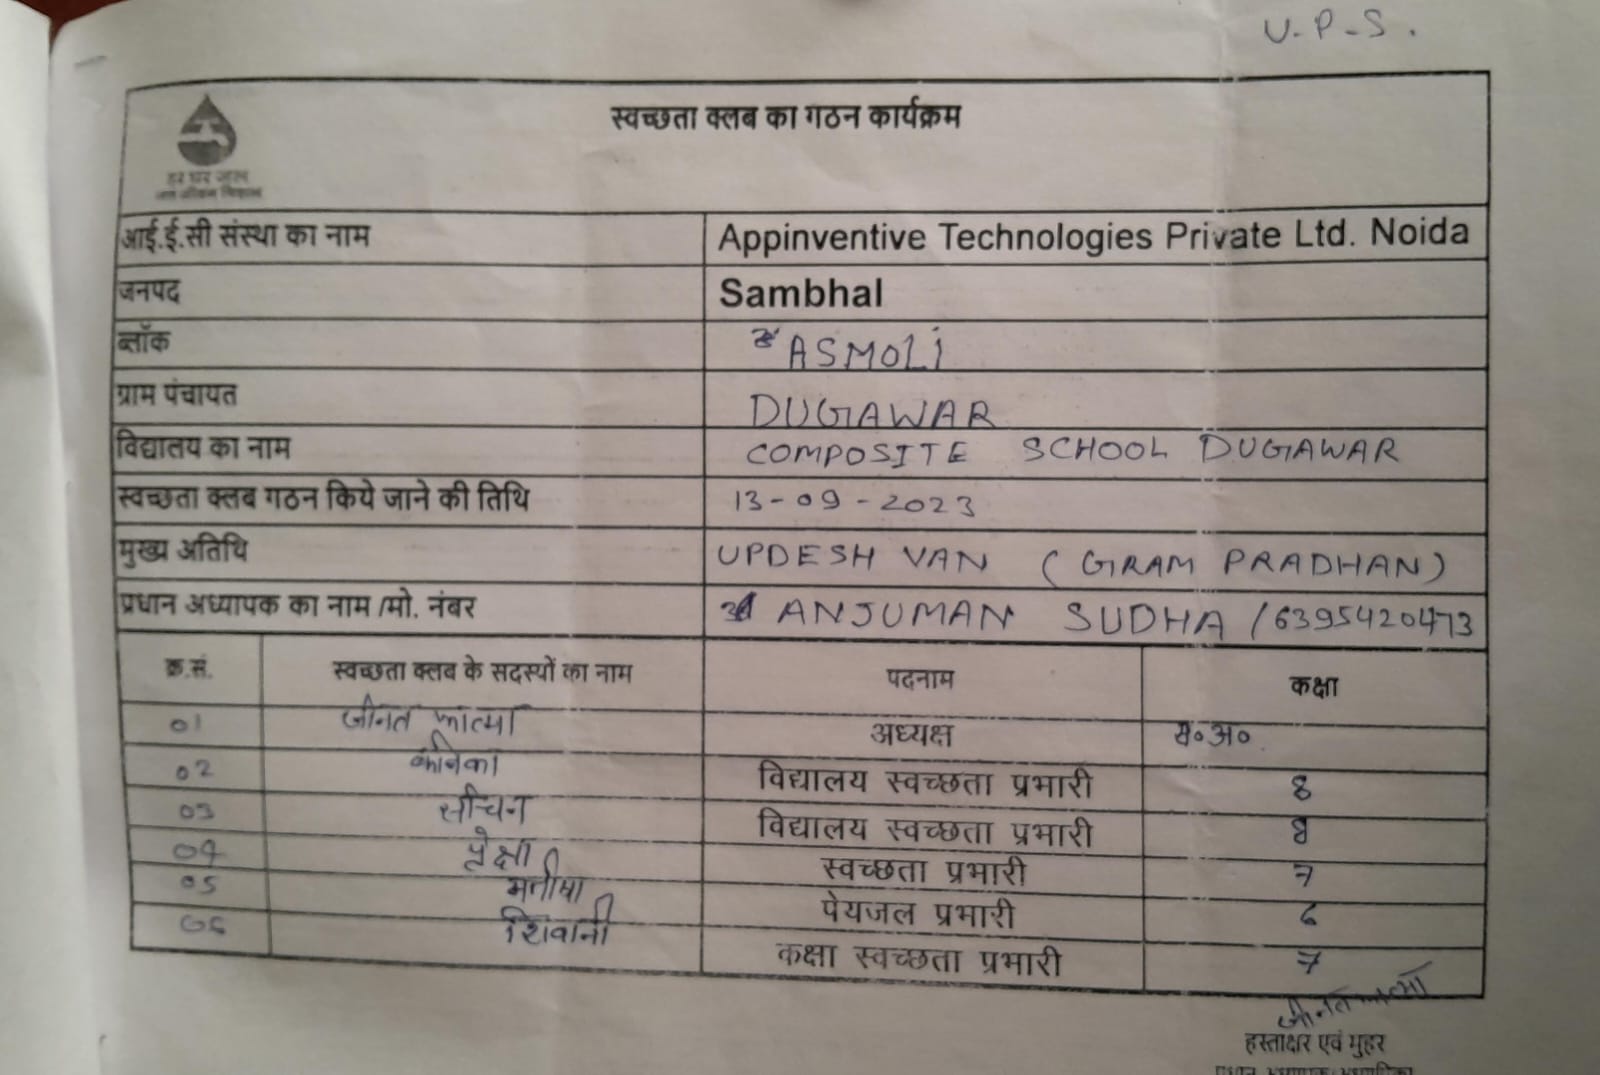 U.P.S.
स्वच्छता क्लब का गठन कार्यक्रम
हर घर जल
जल जीवन मिशन
आई.ई.सी संस्था का नाम Appinventive Technologies Private Ltd. Noida
जनपद Sambhal
ब्लॉक ASMOLi
ग्राम पंचायत DUGAWAR
विद्यालय का नाम COMPOSITE SCHOOL DUGAWAR
स्वच्छता क्लब गठन किये जाने की तिथि 13-09-2023
मुख्य अतिथि UPDESH VAN (GRAM PRADHAN)
प्रधान अध्यापक का नाम /मो. नंबर ANJUMAN SUDHA /6395420473
क्र.सं. स्वच्छता क्लब के सदस्यों का नाम पदनाम कक्षा
01 जीनत फात्मा अध्यक्ष स०अ०
02 कनिका विद्यालय स्वच्छता प्रभारी 8
03 सचिन विद्यालय स्वच्छता प्रभारी 8
04 प्रेक्षा स्वच्छता प्रभारी 7
05 मनीषा पेयजल प्रभारी 6
06 शिवानी कक्षा स्वच्छता प्रभारी 7
जीनत फात्मा
हस्ताक्षर एवं मुहर